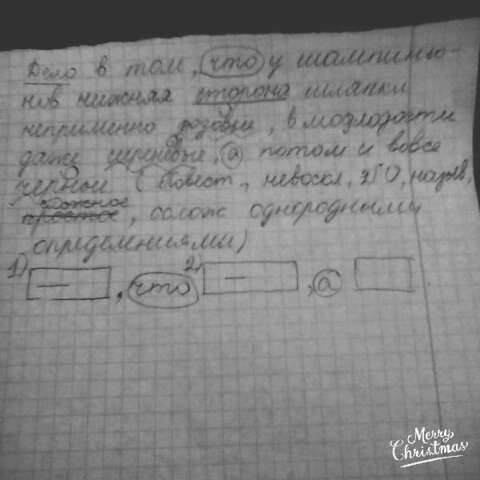 Дело в том, что у шампиньо-
нов нижняя сторона шляпки
неприменно розовые, в молодости
даже сиреневые, а потом и вовсе
черные (Повест., невоскл, 2ГО, назыв,
сложное
простое, ослож однородными
определениями)
1) , что 2) , а
Merry
Christmas